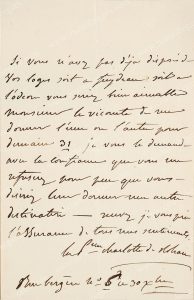 Si vous n'avez pas déja disposé
vos loges soit a feydeau soit a
l'odeon vous seriez bien aimable
monsieur le vicomte de me
donner l'une ou l'autre pour
demain 31 je vous le demande
avec la confiance que vous me
refuserez pour peu que vous
desiriez leur donner une autre
destination — recevez je vous prie
l'assurance de tous mes sentiments
la Psse charlotte de rohan
Rue bergère No 6 ce 30 xbre